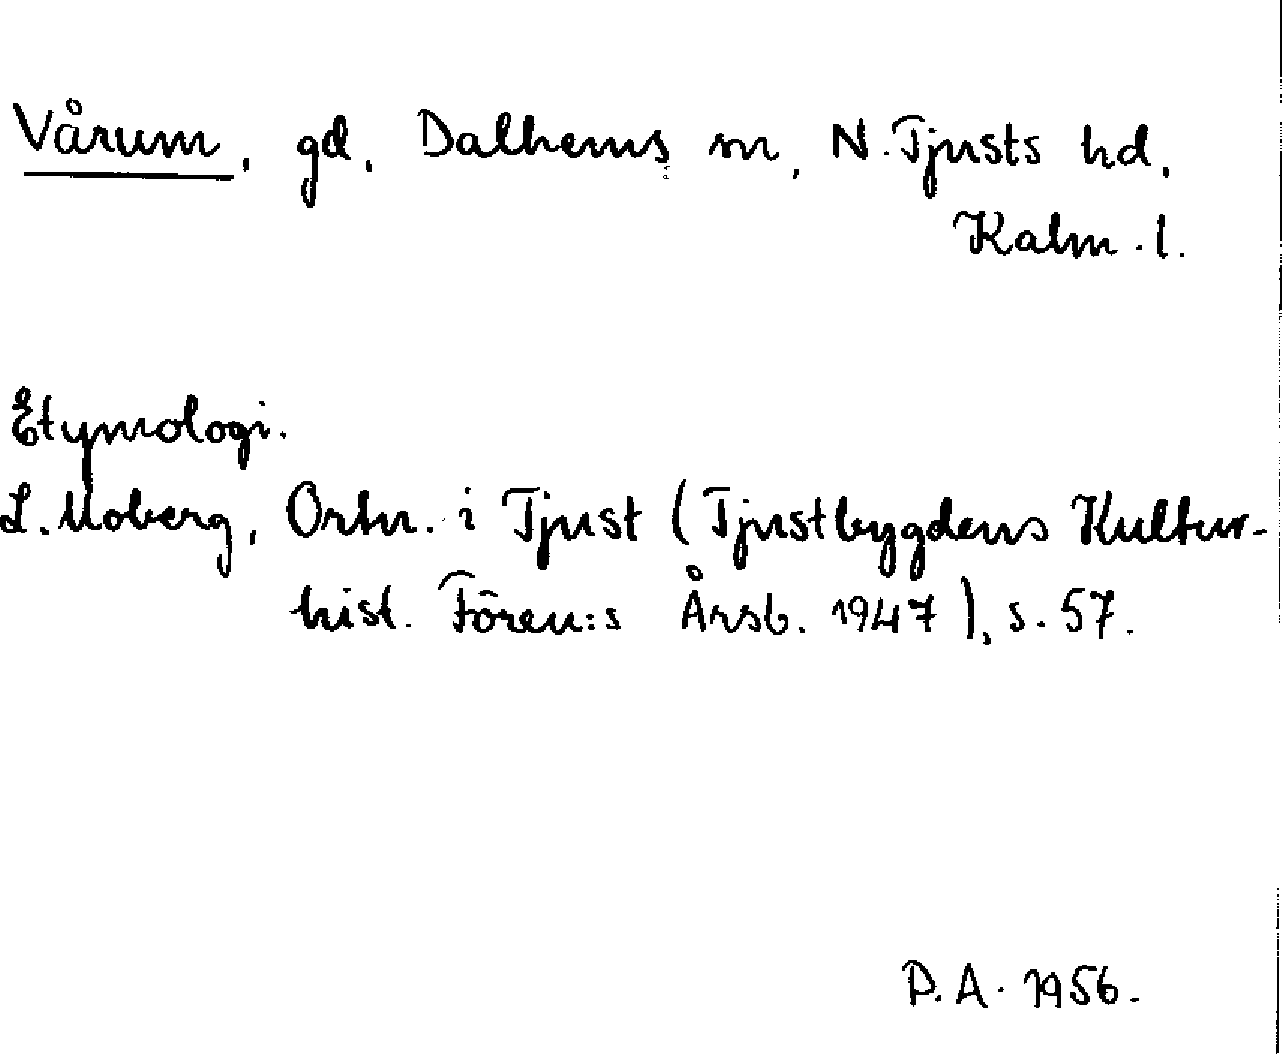 Vårum, gd, Dalhems sn, N. Tjusts hd,
Kalm. l.
Etymologi.
L. Moberg, Ortn. i Tjust (Tjustbygdens Kultur-
hist. Fören:s Årsb. 1947), s. 57.
P. A. 1956.